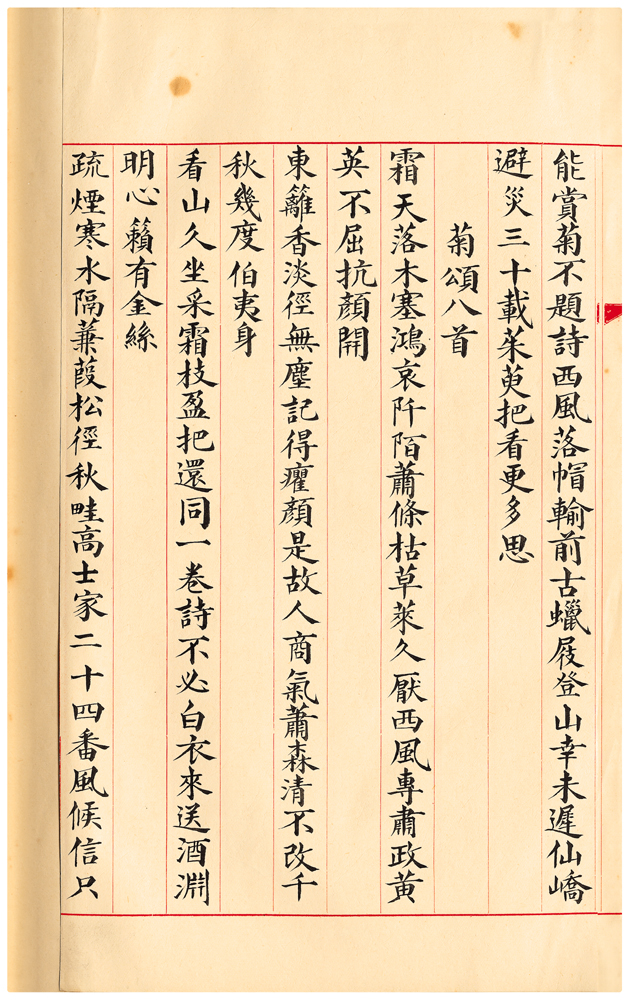 能賞菊不題詩西風落帽輸前古蠟屐登山幸未遲仙嶠
避災三十載茱萸把看更多思
菊頌八首
霜天落木塞鴻哀阡陌蕭條枯草萊久厭西風專肅政黃
英不屈抗顏開
東籬香淡徑無塵記得癯顏是故人商氣蕭森清不改千
秋幾度伯夷身
看山久坐采霜枝盈把還同一卷詩不必白衣來送酒淵
明心籟有金絲
疏煙寒水隔蒹葭松徑秋畦高士家二十四番風候信只